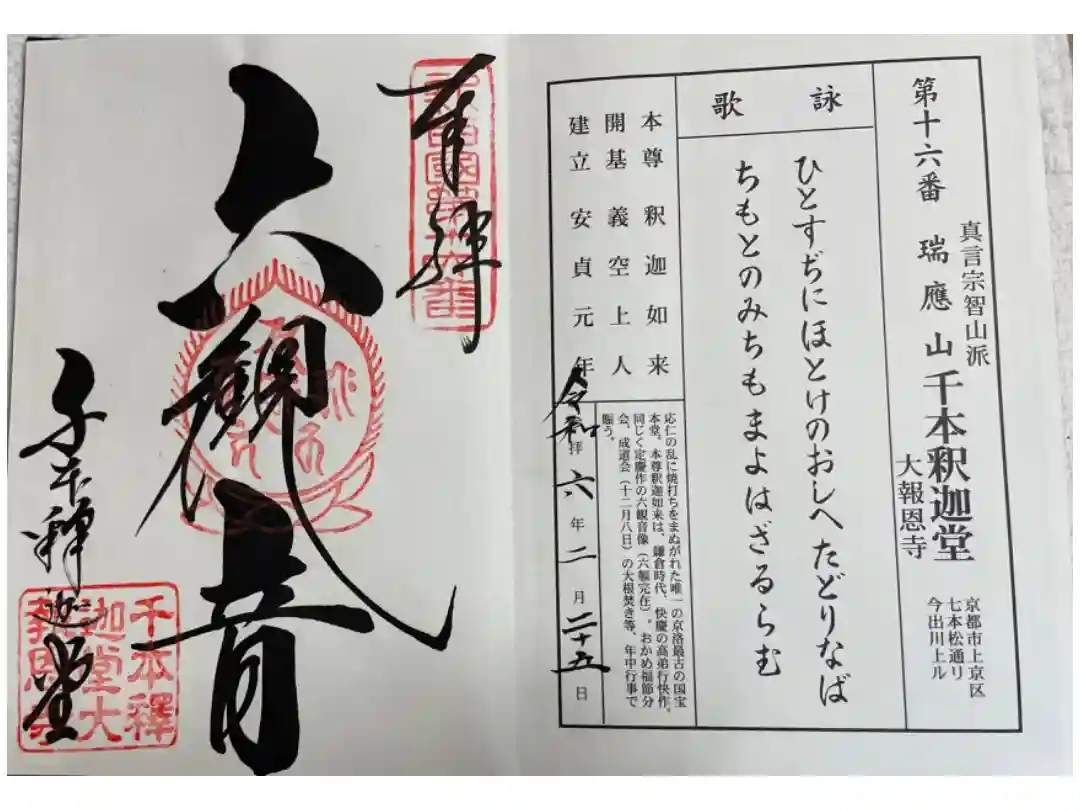 第十六番 瑞應山 千本釈迦堂
真言宗智山派
大報恩寺
京都市上京区
七本松通り
今出川上ル
詠歌
ひとすぢにほとけのおしへたどりなば
ちもとのみちもまよはざるらむ
本尊 釈迦如来
開基 義空上人
建立 安貞元年
応仁の乱に焼打ちをまぬがれた唯一の京洛最古の国宝
本堂。本尊釈迦如来は、鎌倉時代、快慶の高弟行快作。
同じく定慶作の六観音像(六軀完在)。おかめ福節分
会、成道会(十二月八日)の大根焚き等、年中行事で
賑う。
令和六年二月二十五日
拝
奉拝
六観音
千本釋迦堂
千本釋
迦堂大
報恩寺